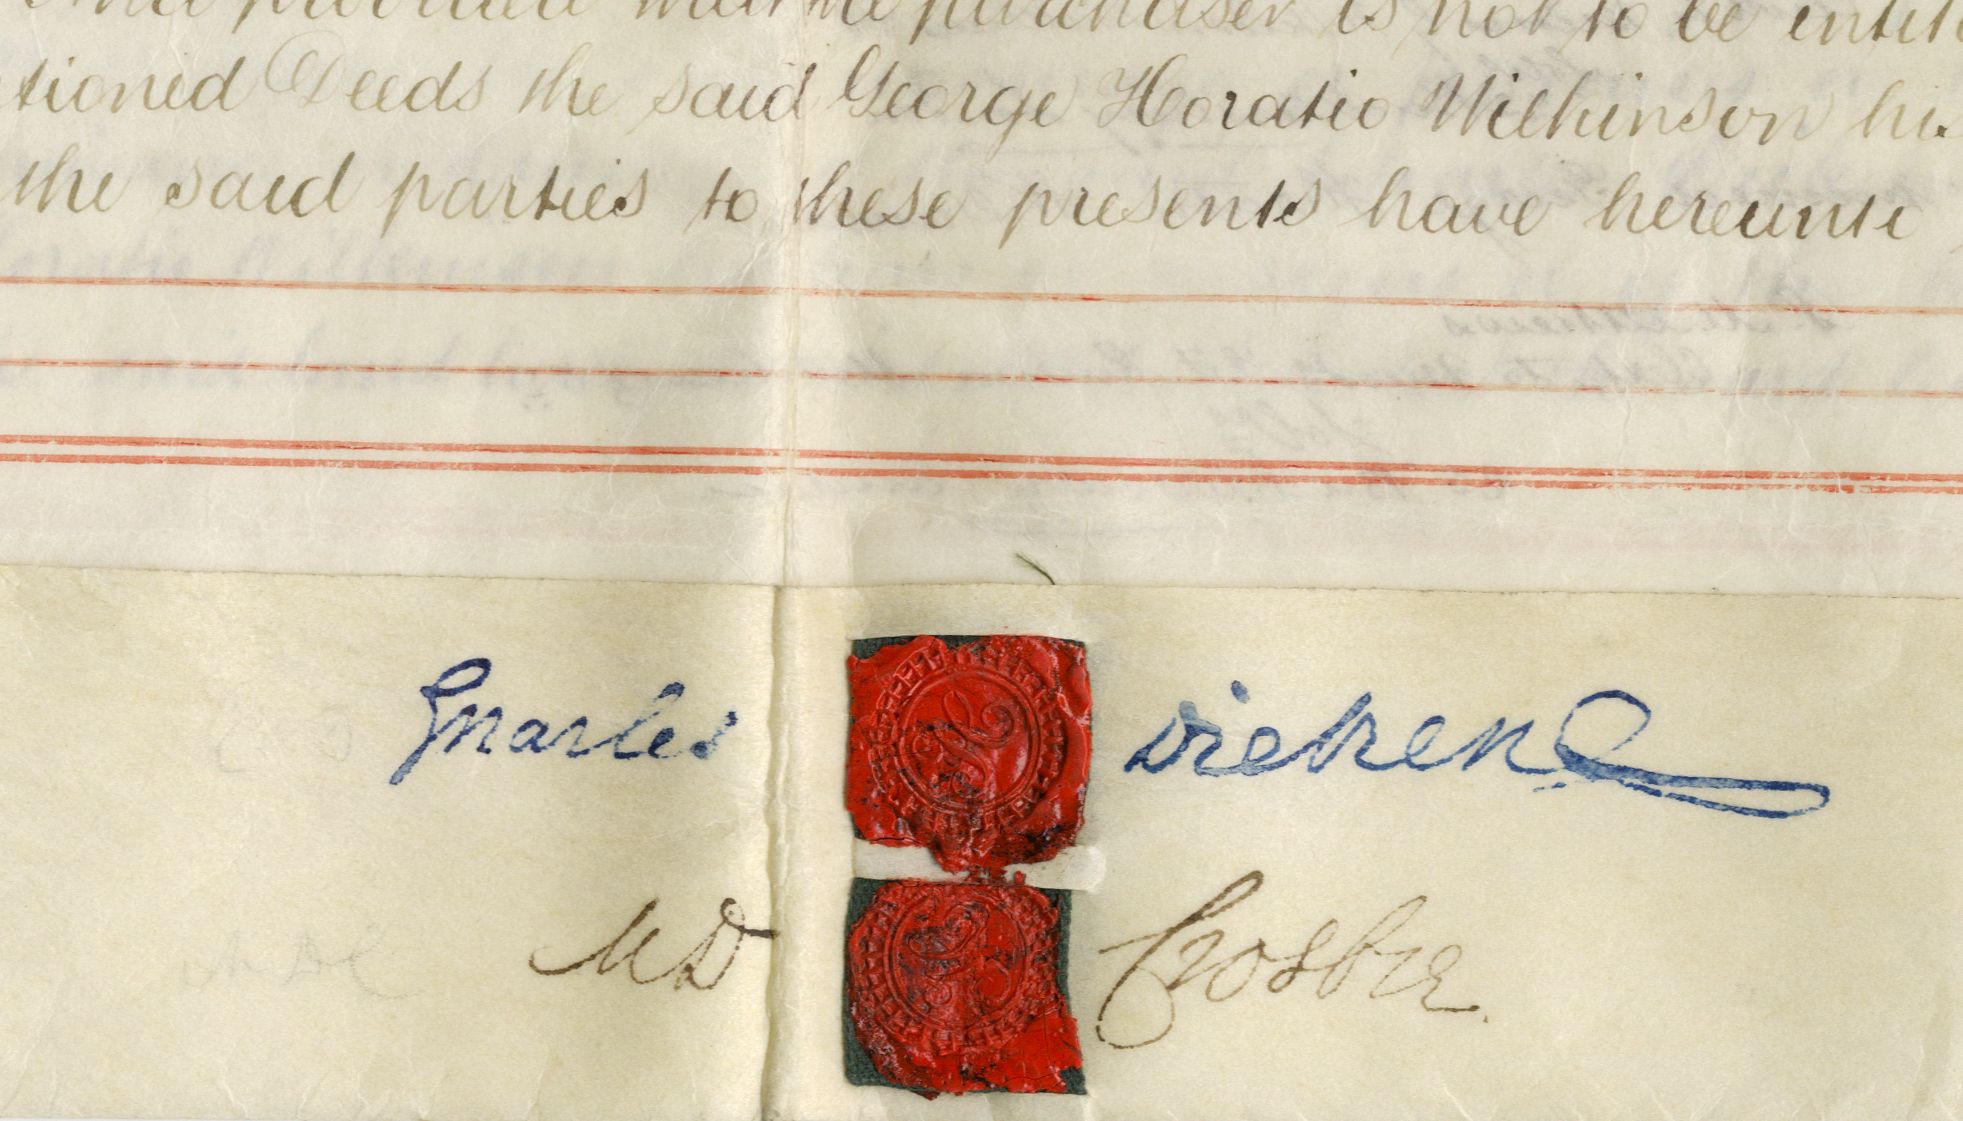 and provided that the purchaser is not to be entit
tioned Deeds the said George Horatio Wilkinson his
the said parties to these presents have hereunto
Charles Dickens
M D Crosbie